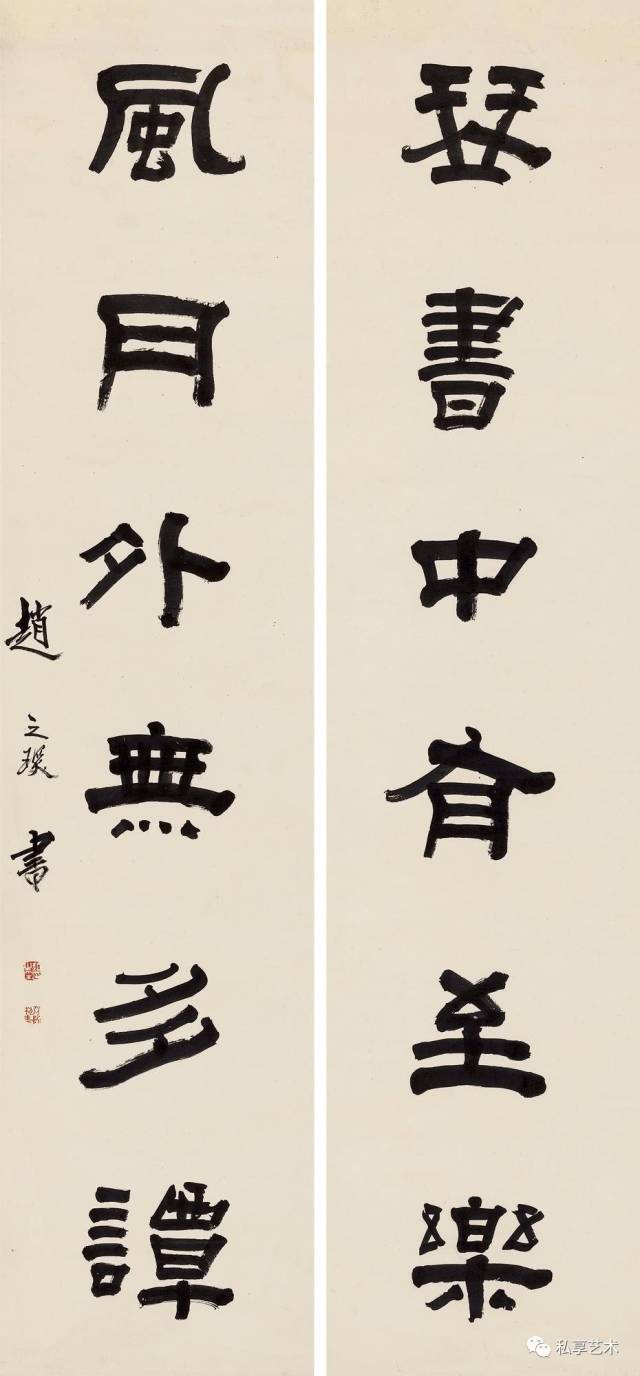 琹書中有至樂
風月外無多譚
趙之琛書
私享艺术